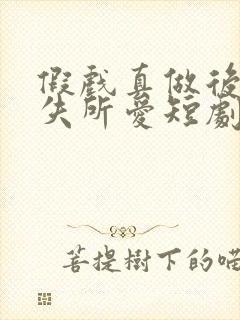 假戲真做後
失所愛短劇
菩提樹下的喵